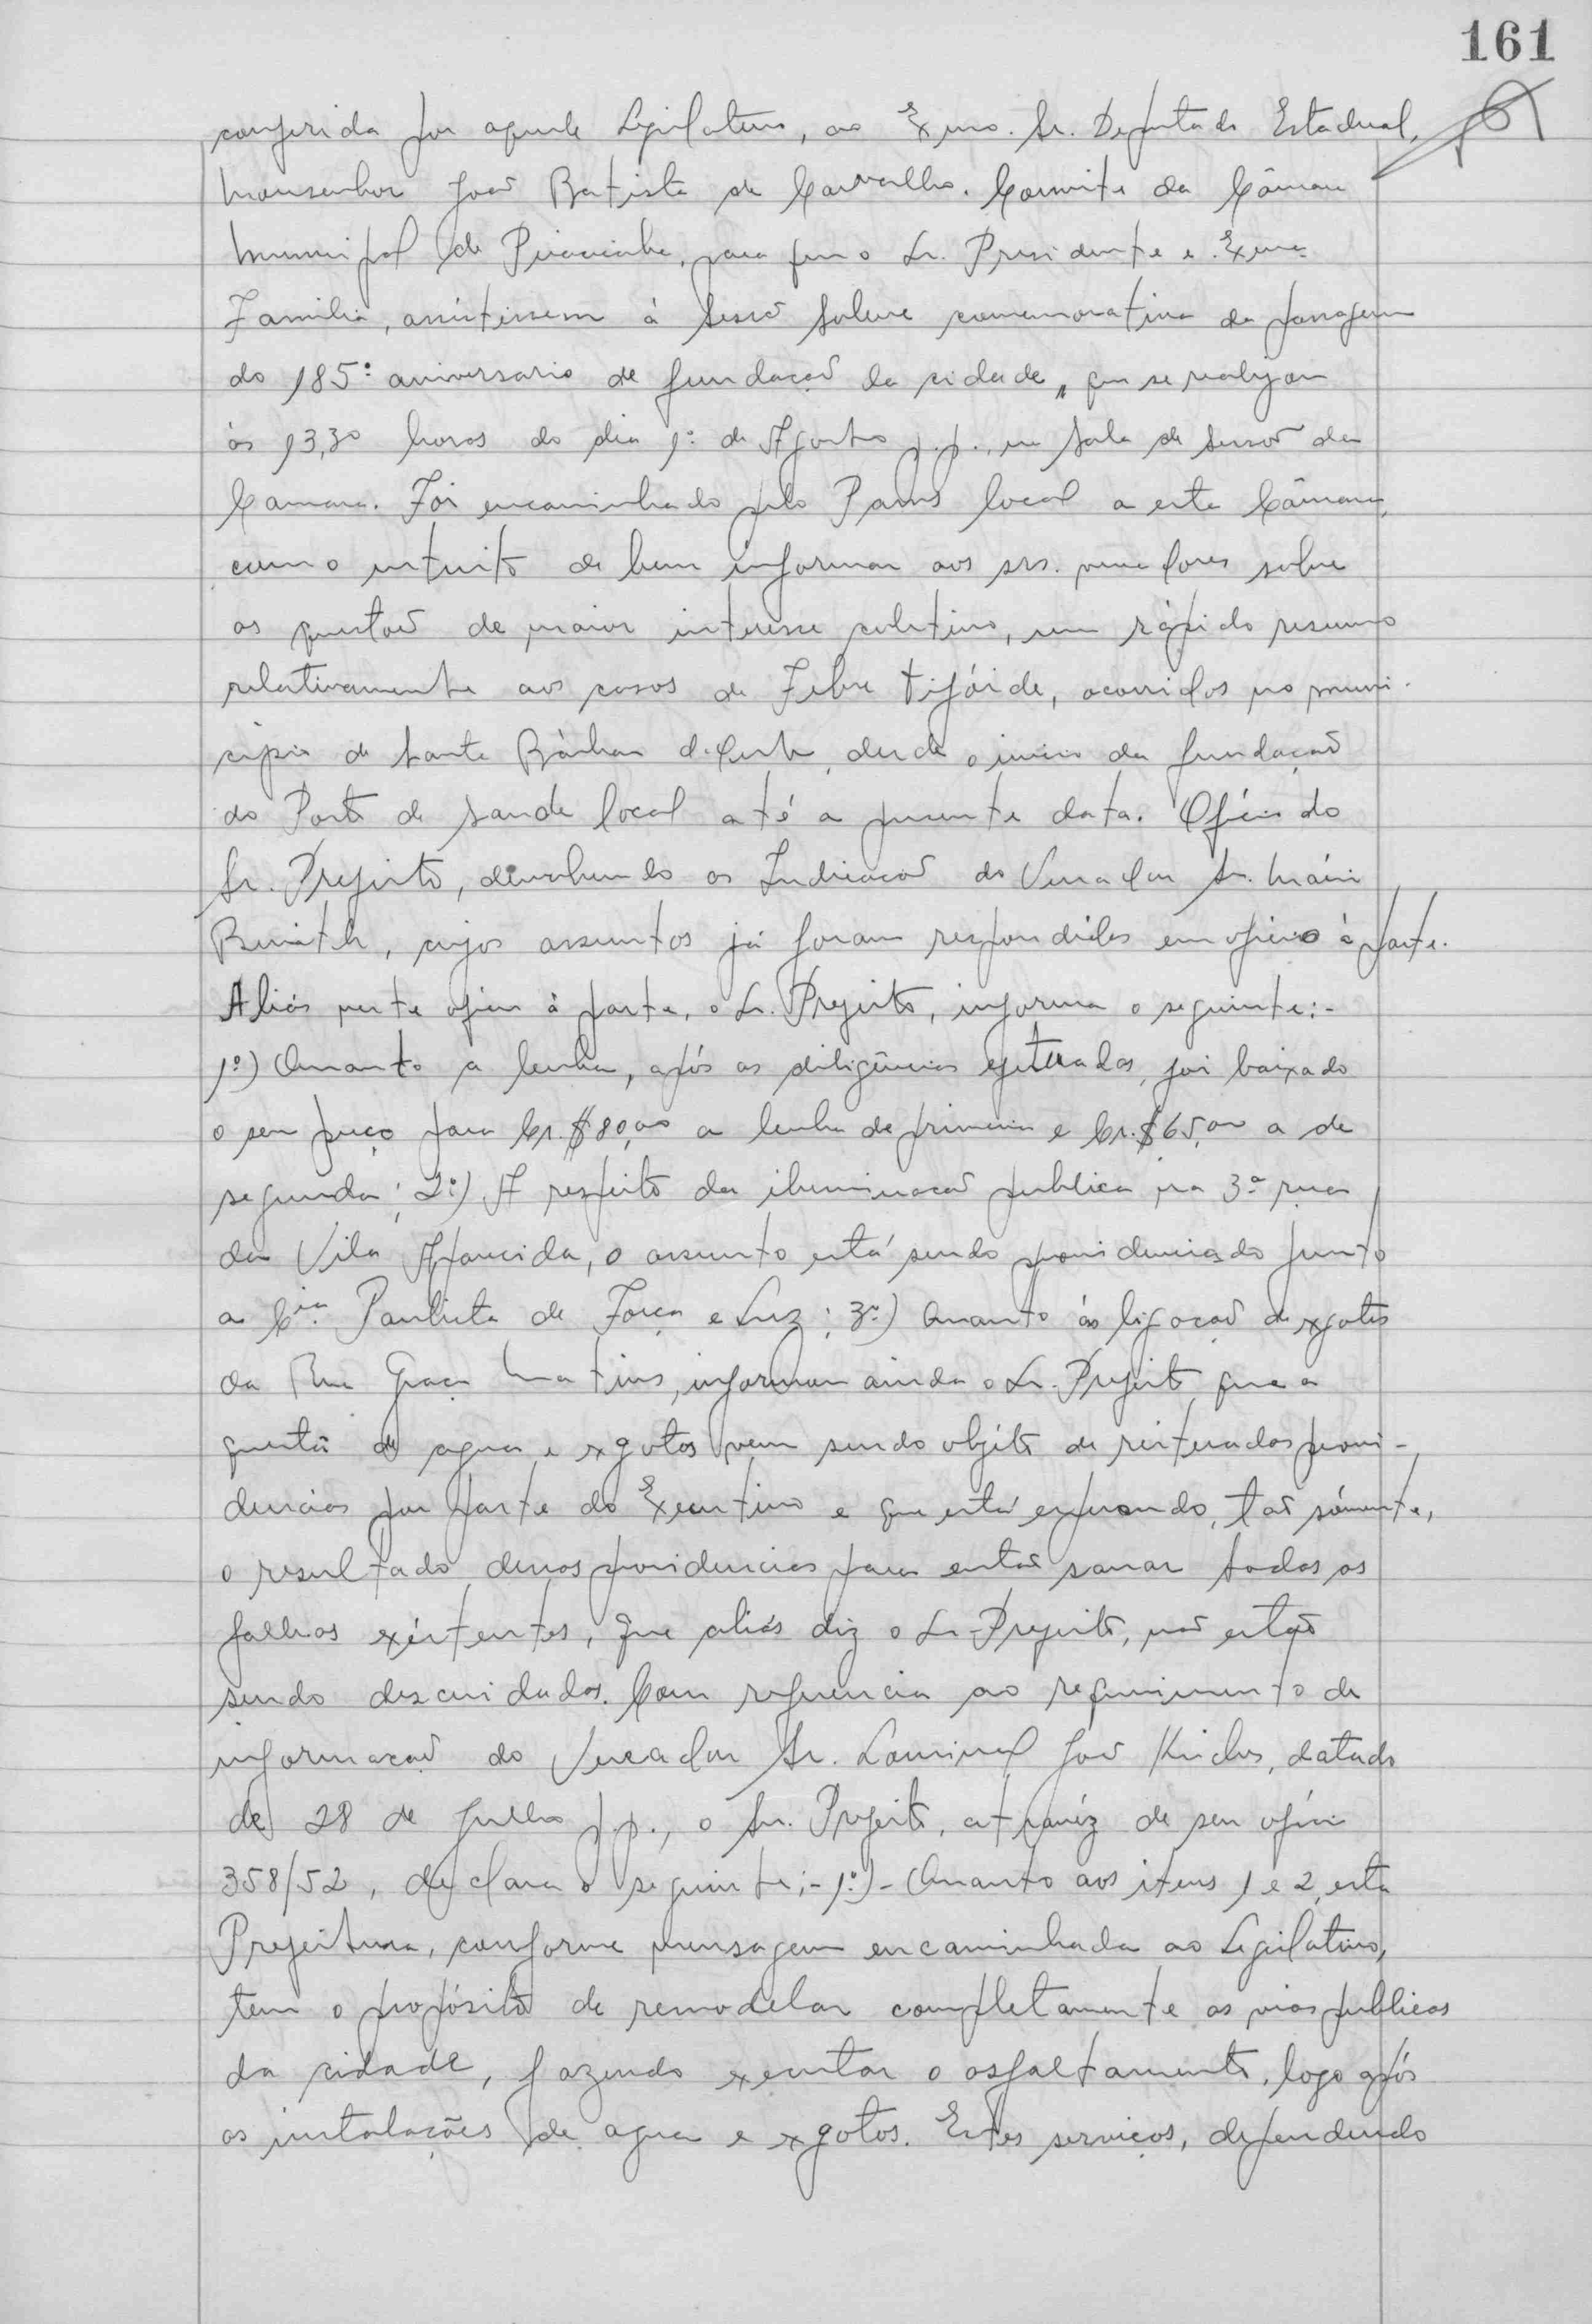 161
conferida por aquele Legislativo, ao Exmo. Sr. Deputado Estadual,
Monsenhor João Batista de Carvalho. Convite da Câmara
Municipal de Piracicaba, para que o Sr. Presidente e Exma.
Familia, assistissem à sessão solene comemorativa da passagem
do 185º aniversario de fundação da cidade, que se realizou
ás 13,30 horas do dia 1º de Agosto p.p., na sala de sessão da
Camara. Foi encaminhado pelo Pams local a esta Câmara,
com o intuito de bem informar aos srs. vereadores sobre
as questões de maior interesse coletivo, um rápido resumo
relativamente aos casos de Febre tifóide, ocorridos no muni-
cípio de Santa Bárbara d'Oeste, desde o inicio da fundação
do Posto de Saude local até a presente data. Ofício do
Sr. Prefeito, devolvendo as Indicações do Vereador Sr. Mário
cujos assuntos já foram respondidos em ofício à parte.
Aliás neste ofício à parte, o Sr. Prefeito, informa o seguinte:-
1º) Quanto a lenha, após as diligências efetuadas, foi baixado
o seu preço para Cr.$80,00 a lenha de primeira e Cr.$65,00 a de
segunda; 2º) A respeito da iluminação publica na 3ª rua
da Vila Aparecida, o assunto está sendo providenciado junto
a Cia. Paulista de Força e Luz; 3º) Quanto ás ligações de exgotos
da Rua Graça Martins, informou ainda o Sr. Prefeito que a
questão de agua e exgotos vem sendo objéto de reiteradas provi-
dencias por parte do Executivo e que está esperando, tão sómente,
o resultado dessas providencias para então sanar todas as
falhas existentes, que aliás diz o Sr. Prefeito, não estão
sendo descuidadas. Com referencia ao requerimento de
informação do Vereador Sr. Lourival João datado
de 28 de Julho p.p., o Sr. Prefeito, atravéz de seu ofício
358/52, declara o seguinte:- 1º)- Quanto aos itens 1 e 2, esta
Prefeitura, conforme mensagem encaminhada ao Legislativo,
tem o propósito de remodelar completamente as vias publicas
da cidade, fazendo executar o asfaltamento, logo após
as instalações de agua e exgotos. Estes serviços, dependendo